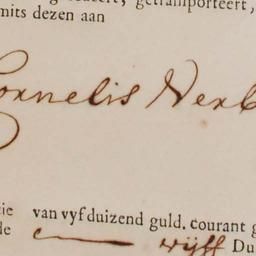 getransporteert,
mits dezen aan
Cornelis Verb
van vyf duizend guld. courant g
wijff Du